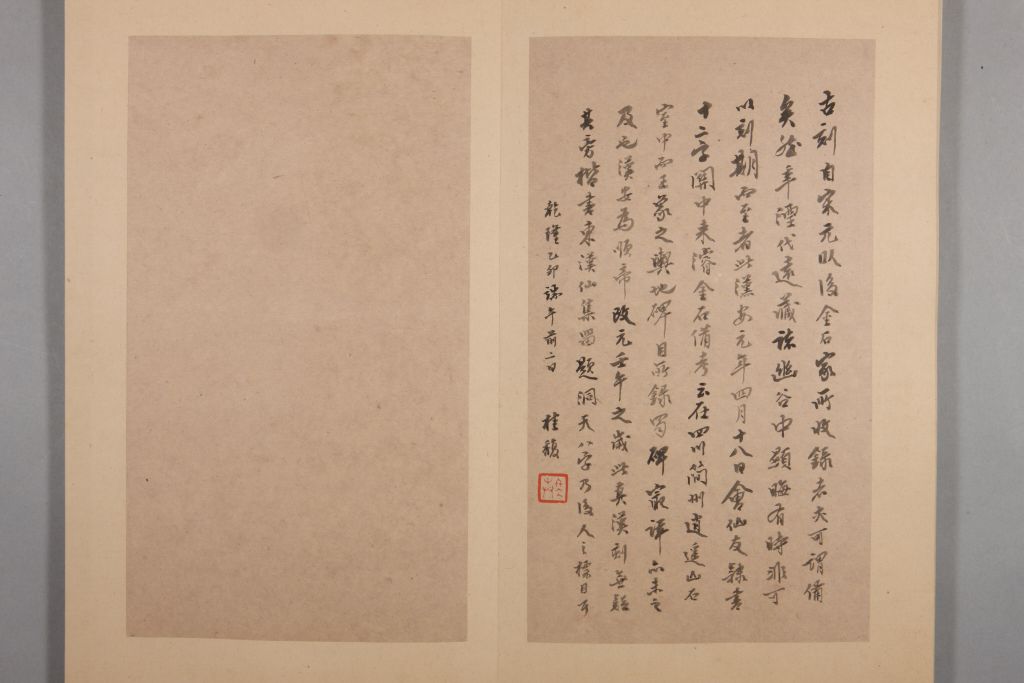 古刻自宋元以後金石家所收錄者夫可謂備
矣然年湮代遠藏諸幽谷中顯晦有時非可
以刻期而至者此漢安元年四月十八日會仙友隸書
十二字關中來濬金石備考云在四川簡州逍遥山石
室中而王象之輿地碑目所錄蜀碑最詳亦未之
及也漢安為順帝改元壬午之歲此真漢刻無疑
其旁楷書東漢仙集留題洞天八字乃後人之標目耳
乾隆乙卯端午前二日 桂馥